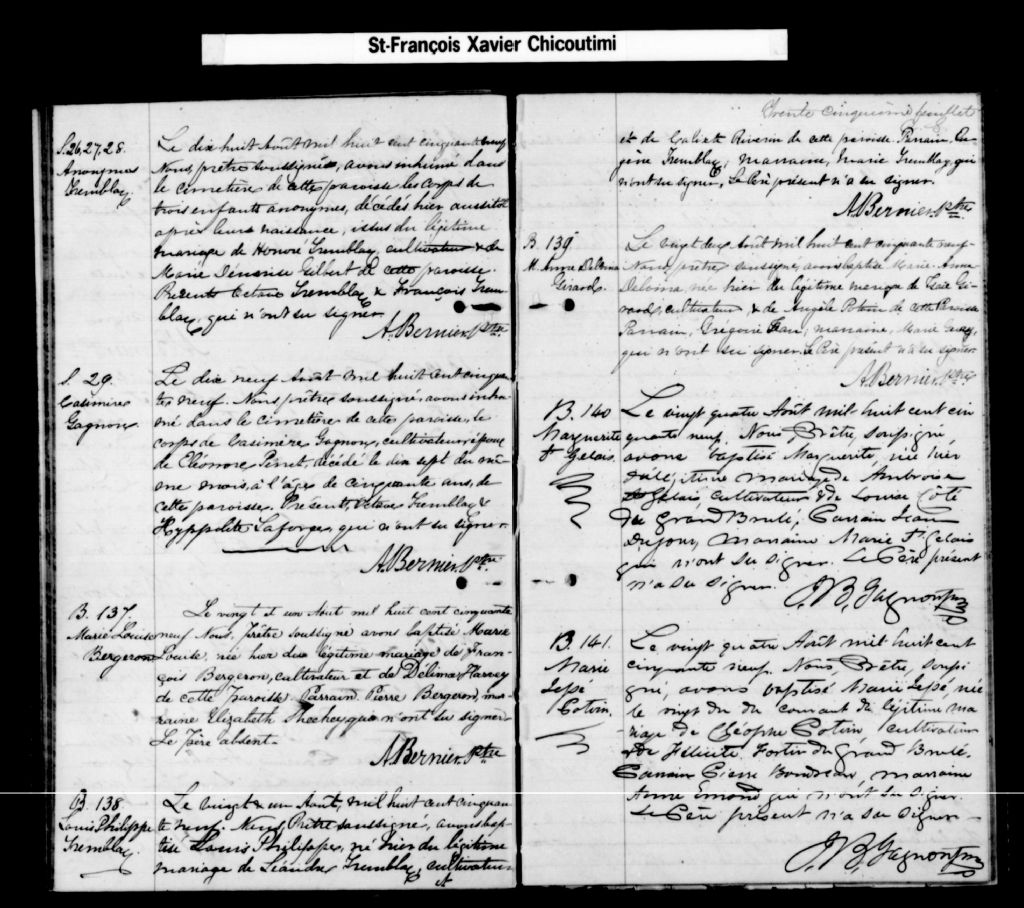 St-François Xavier Chicoutimi
S. 26, 27, 28.
Anonymes
Tremblay
Le dix huit Août mil huit cent cinquante neuf,
Nous, prêtre soussigné, avons inhumé dans
le cimetière de cette paroisse les corps de
trois enfants anonymes, décédés hier aussitôt
après leur naissance, issus du légitime
mariage de Honoré Tremblay, cultivateur & de
Marie Denise Gilbert de cette paroisse.
Présents Octave Tremblay & François Trem
blay, qui n'ont su signer.
A. Bernier, Ptre.
S. 29.
Casimire
Gagnon
Le dix neuf Août mil huit cent cinquan
te neuf. Nous prêtre soussigné, avons inhu
mé dans le cimetière de cette paroisse, le
corps de Casimire Gagnon, cultivateur, époux
de Eléonore Perret, décédé le dix sept du mê-
me mois, à l'âge de cinquante ans, de
cette paroisse. Présents, Octave Tremblay &
Hyppolite Laforge, qui n'ont su signer.
A. Bernier, Ptre
B. 137.
Marie Louise
Bergeron
Le vingt et un Août mil huit cent cinquante
neuf Nous, prêtre soussigné avons baptisé Marie
Louise, née hier du légitime mariage de Fran-
çois Bergeron, cultivateur et de Délima Harvey
de cette paroisse Parrain Pierre Bergeron, mar-
raine Elizabeth qui n'ont su signer.
Le père absent.
A. Bernier, Ptre
B. 138.
Louis Philippe
Tremblay
Le vingt & un Août, mil huit cent cinquan
te neuf. Nous Prêtre soussigné, avons bap-
tisé Louis Philippe, né hier du légitime
mariage de Léandre Tremblay, cultivateur
Trente cinquième feuillet
et de Calixte Riverin de cette paroisse. Parrain, Eu-
gène Tremblay, marraine, Marie Tremblay, qui
n'ont su signer, Le Père présent n'a su signer.
A. Bernier, Ptre
B. 139
M. Anna Delvina
Girard
Le vingt deux Août mil huit cent cinquante neuf
Nous, prêtre soussigné, avons baptisé Marie-Anna
Delvina, née hier du légitime mariage de Gi-
rard, cultivateur & de Angèle Potvin de cette Paroisse
Parrain, Grégoire marraine, Marie
qui n'ont su signer. Le Père présent n'a su signer.
A. Bernier, Ptre
B. 140
Marguerite
St Gelais
Le vingt quatre Août mil huit cent cin
quante neuf. Nous, Prêtre, soussigné,
avons baptisé Marguerite, née hier
du légitime mariage de Ambroise
St Gelais, cultivateur & de Louise Côté
du Grand Brulé, Parrain Jean
Dufour, Marraine Marie St Gelais
qui n'ont su signer. Le Père présent
n'a su signer.
J. B. Gagnon ptre
B. 141.
Marie
Zepé
Potvin.
Le vingt quatre Août mil huit cent
cinquante neuf. Nous, Prêtre, soussi
gné, avons baptisé Marie Zepé, née
le vingt du courant du légitime ma
riage de Cléophe Potvin cultivateur
& de Félicité Fortin du Grand Brulé.
Parrain Pierre Boudreau, marraine
Anne Emond qui n'ont su signer.
Le Père présent n'a su signer.
J. B. Gagnon ptre